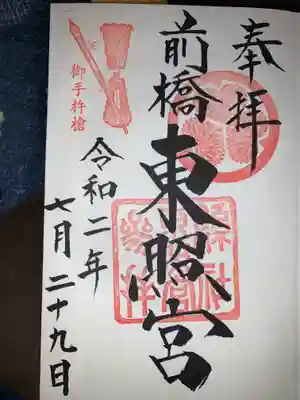 奉拝
前橋東照宮
御手杵槍
令和二年
七月二十九日